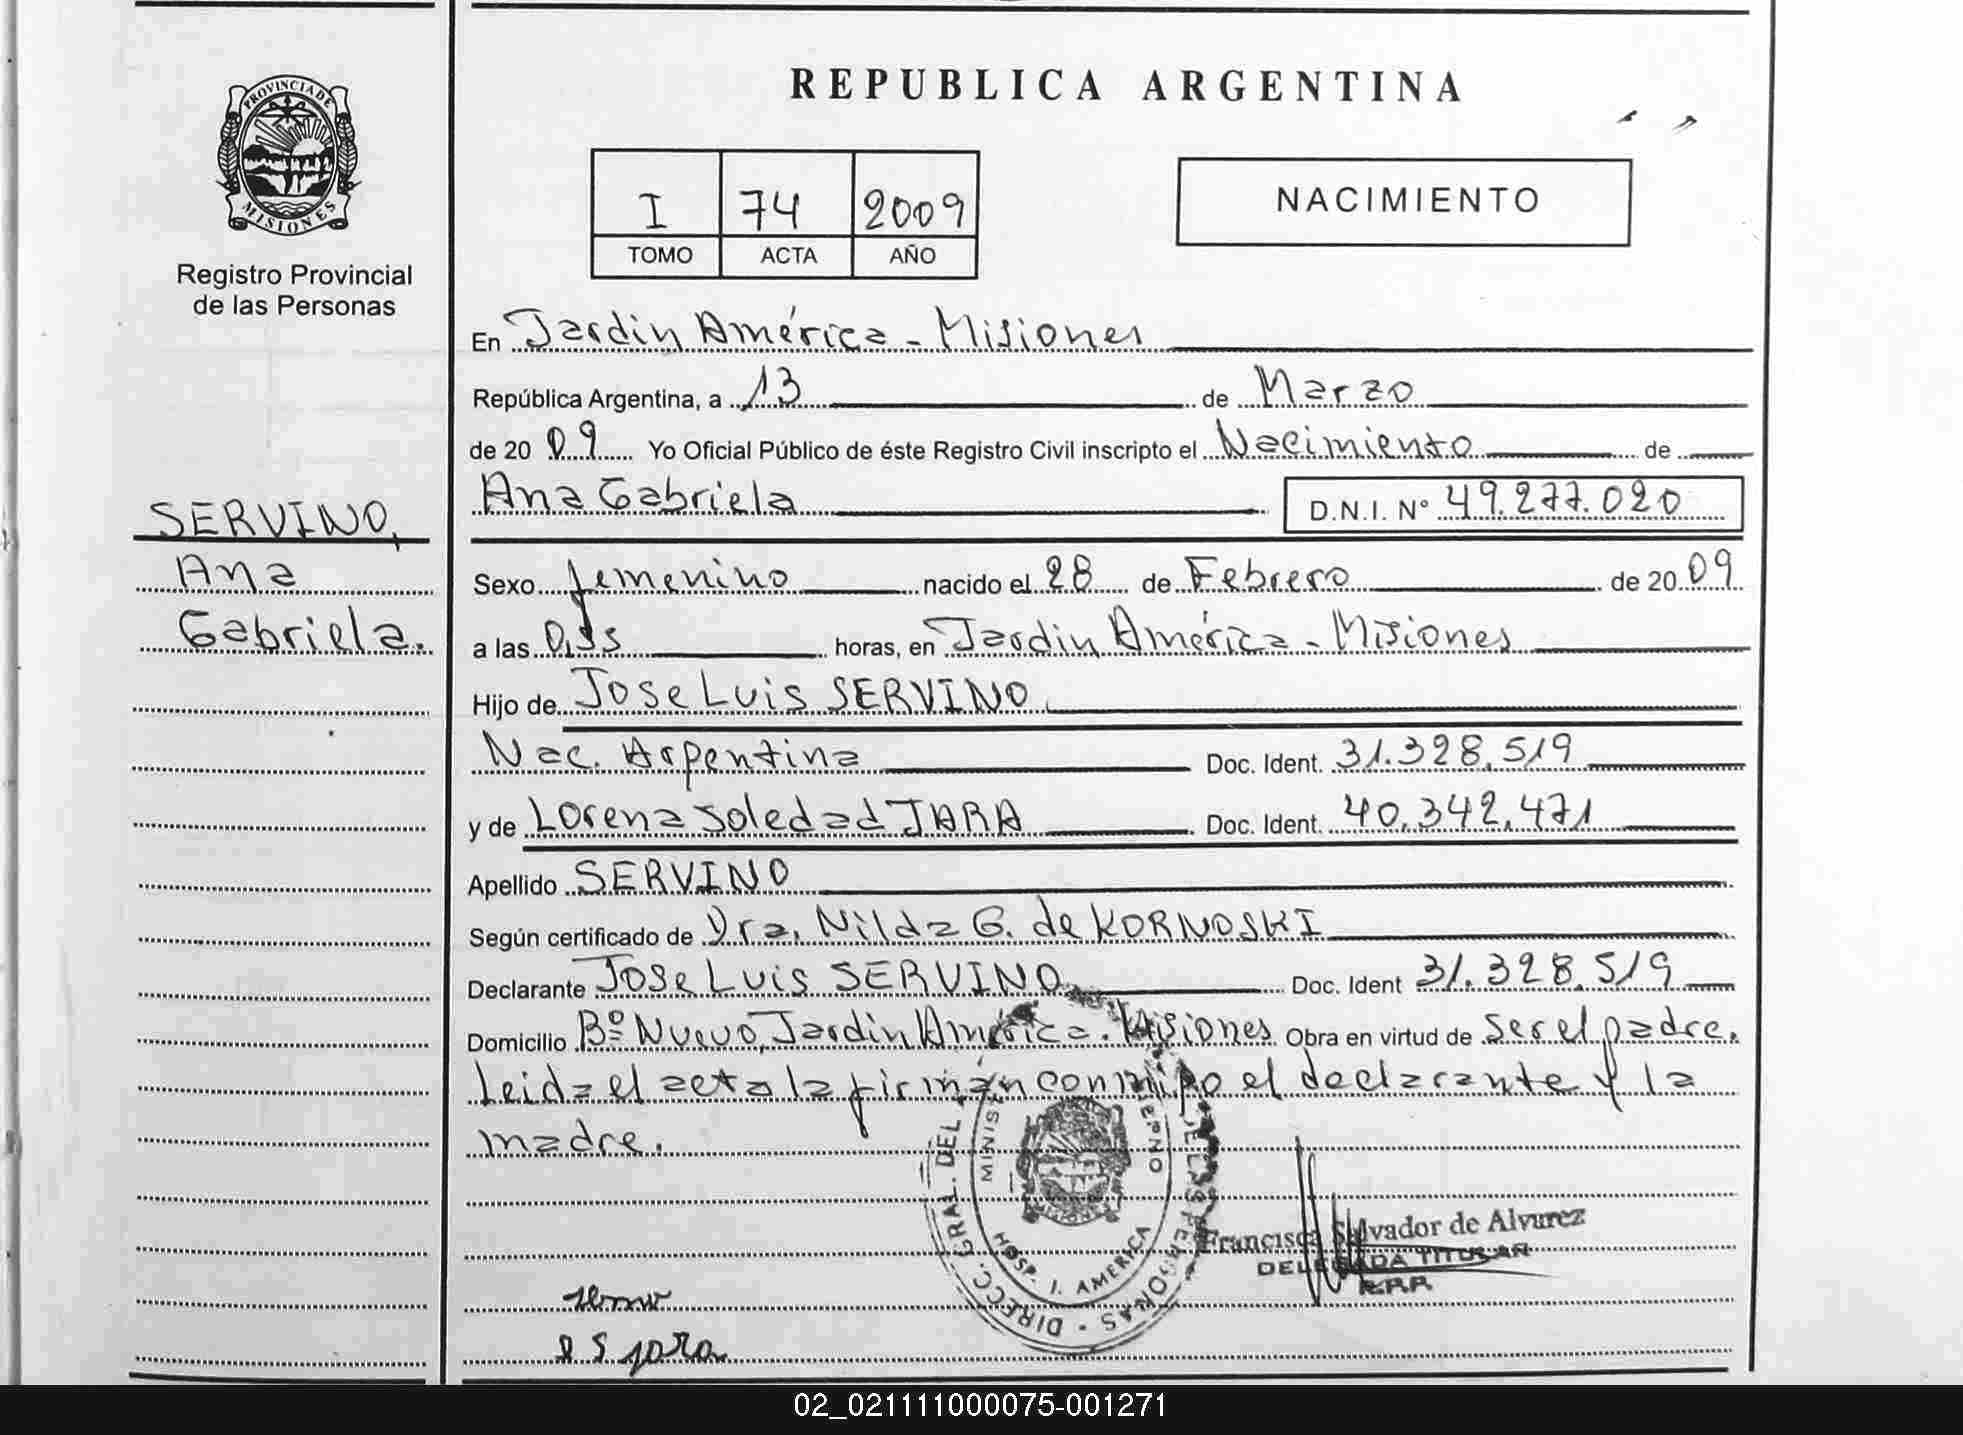 REPUBLICA ARGENTINA
PROVINCIA DE
MISIONES
Registro Provincial
de las Personas
I 74 2009
TOMO ACTA AÑO
NACIMIENTO
En Jardin América - Misiones
República Argentina, a 13 de Marzo
de 20 09 Yo Oficial Público de éste Registro Civil inscripto el Nacimiento de
Ana Gabriela D.N.I. Nº 49.277.020
SERVINO,
Ana
Gabriela.
Sexo femenino nacido el 28 de Febrero de 20 09
a las horas, en Jardin América - Misiones
Hijo de Jose Luis SERVINO
Nac. Argentina Doc. Ident. 31.328.519
y de Lorena Soledad JARA Doc. Ident. 40.342.471
Apellido SERVINO
Según certificado de Dra. Nilda G. de KORNOSKI
Declarante Jose Luis SERVINO Doc. Ident 31.328.519
Domicilio Bº Nuevo, Jardin América. Misiones Obra en virtud de ser el padre.
Leida el acta la firman conmigo el declarante y la
madre.
DIRECC. GRAL. DEL
HOSP. J. AMERICA
Francisca Salvador de Alvarez
DELEGADA TITULAR
R.P.P.
02_021111000075-001271